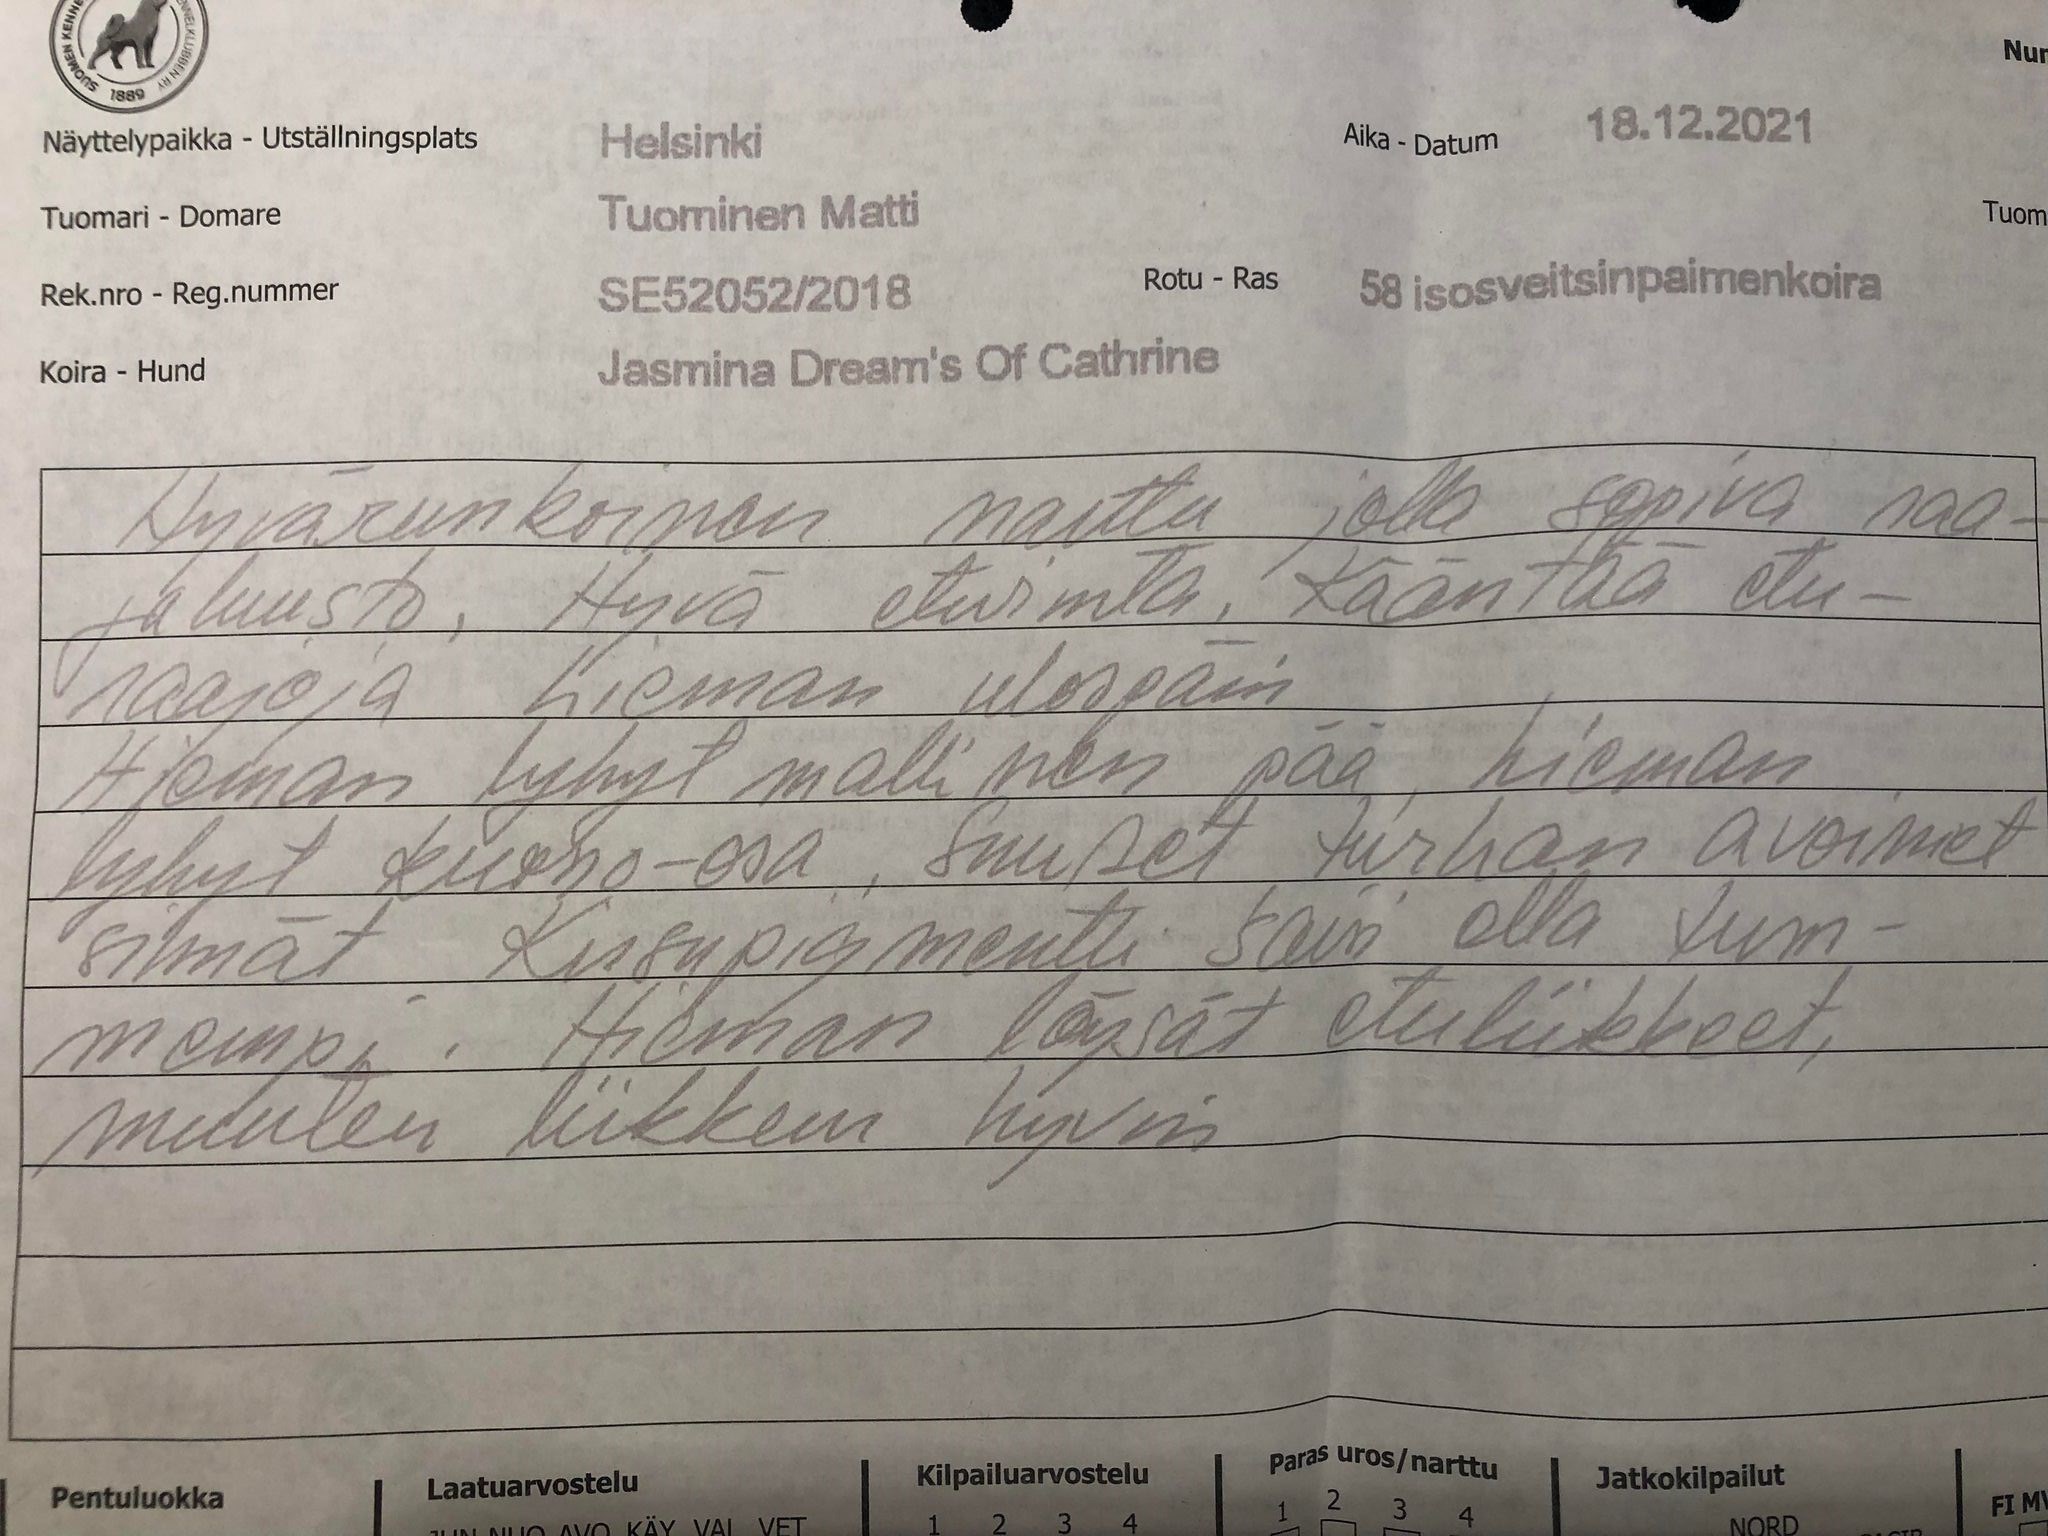 SUOMEN KENNE ENNELKLUBBEN RY 1889
Nur
Näyttelypaikka - Utställningsplats Helsinki Aika - Datum 18.12.2021
Tuomari - Domare Tuominen Matti Tuom
Rek.nro - Reg.nummer SE52052/2018 Rotu - Ras 58 isosveitsinpaimenkoira
Koira - Hund Jasmina Dream's Of Cathrine
Hyvärunkoinen narttu jolla sopiva raa-
jaluusto. Hyvä eturinta. Kääntää etu-
raajoja hieman ulospäin
Hieman lyhyt mallinen pää, hieman
lyhyt kuono-osa, suuret turhan avoimet
silmät Kirsupigmentti saisi olla tum-
mempi. Hieman löysät etuliikkeet,
muuten liikkuu hyvin
Pentuluokka Laatuarvostelu Kilpailuarvostelu Paras uros/narttu Jatkokilpailut FI MV
JUN NUO AVO KÄY VAL VET 1 2 3 4 1 2 3 4 NORD